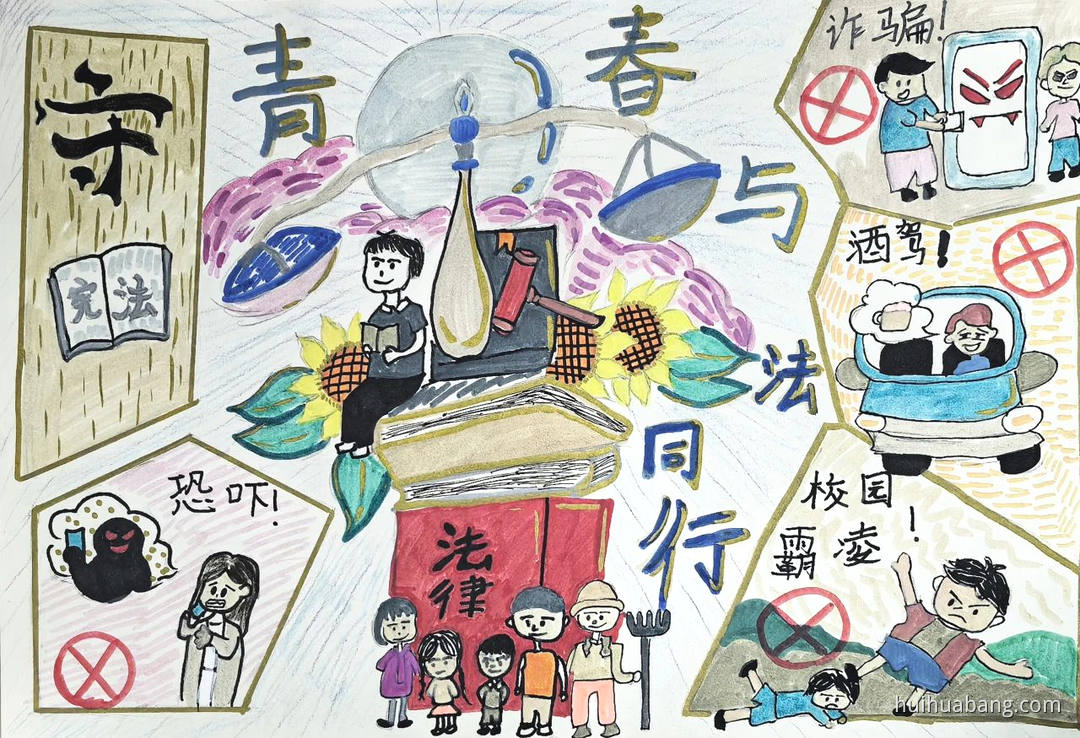 青春与法同行
守
宪法
诈骗!
酒驾!
恐吓!
校园
霸凌!
法
律
huihuabang.com